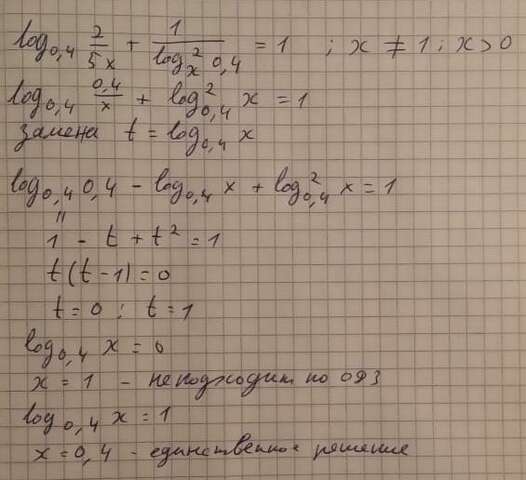 log₀,₄ 2/5x + 1/logₓ² 0,4 = 1 ; x ≠ 1 ; x > 0
log₀,₄ 0,4/x + log²₀,₄ x = 1
замена t = log₀,₄ x
log₀,₄ 0,4 − log₀,₄ x + log²₀,₄ x = 1
"
1 − t + t² = 1
t(t − 1) = 0
t = 0 ; t = 1
log₀,₄ x = 0
x = 1 - не подходит по ОДЗ
log₀,₄ x = 1
x = 0,4 - единственное решение